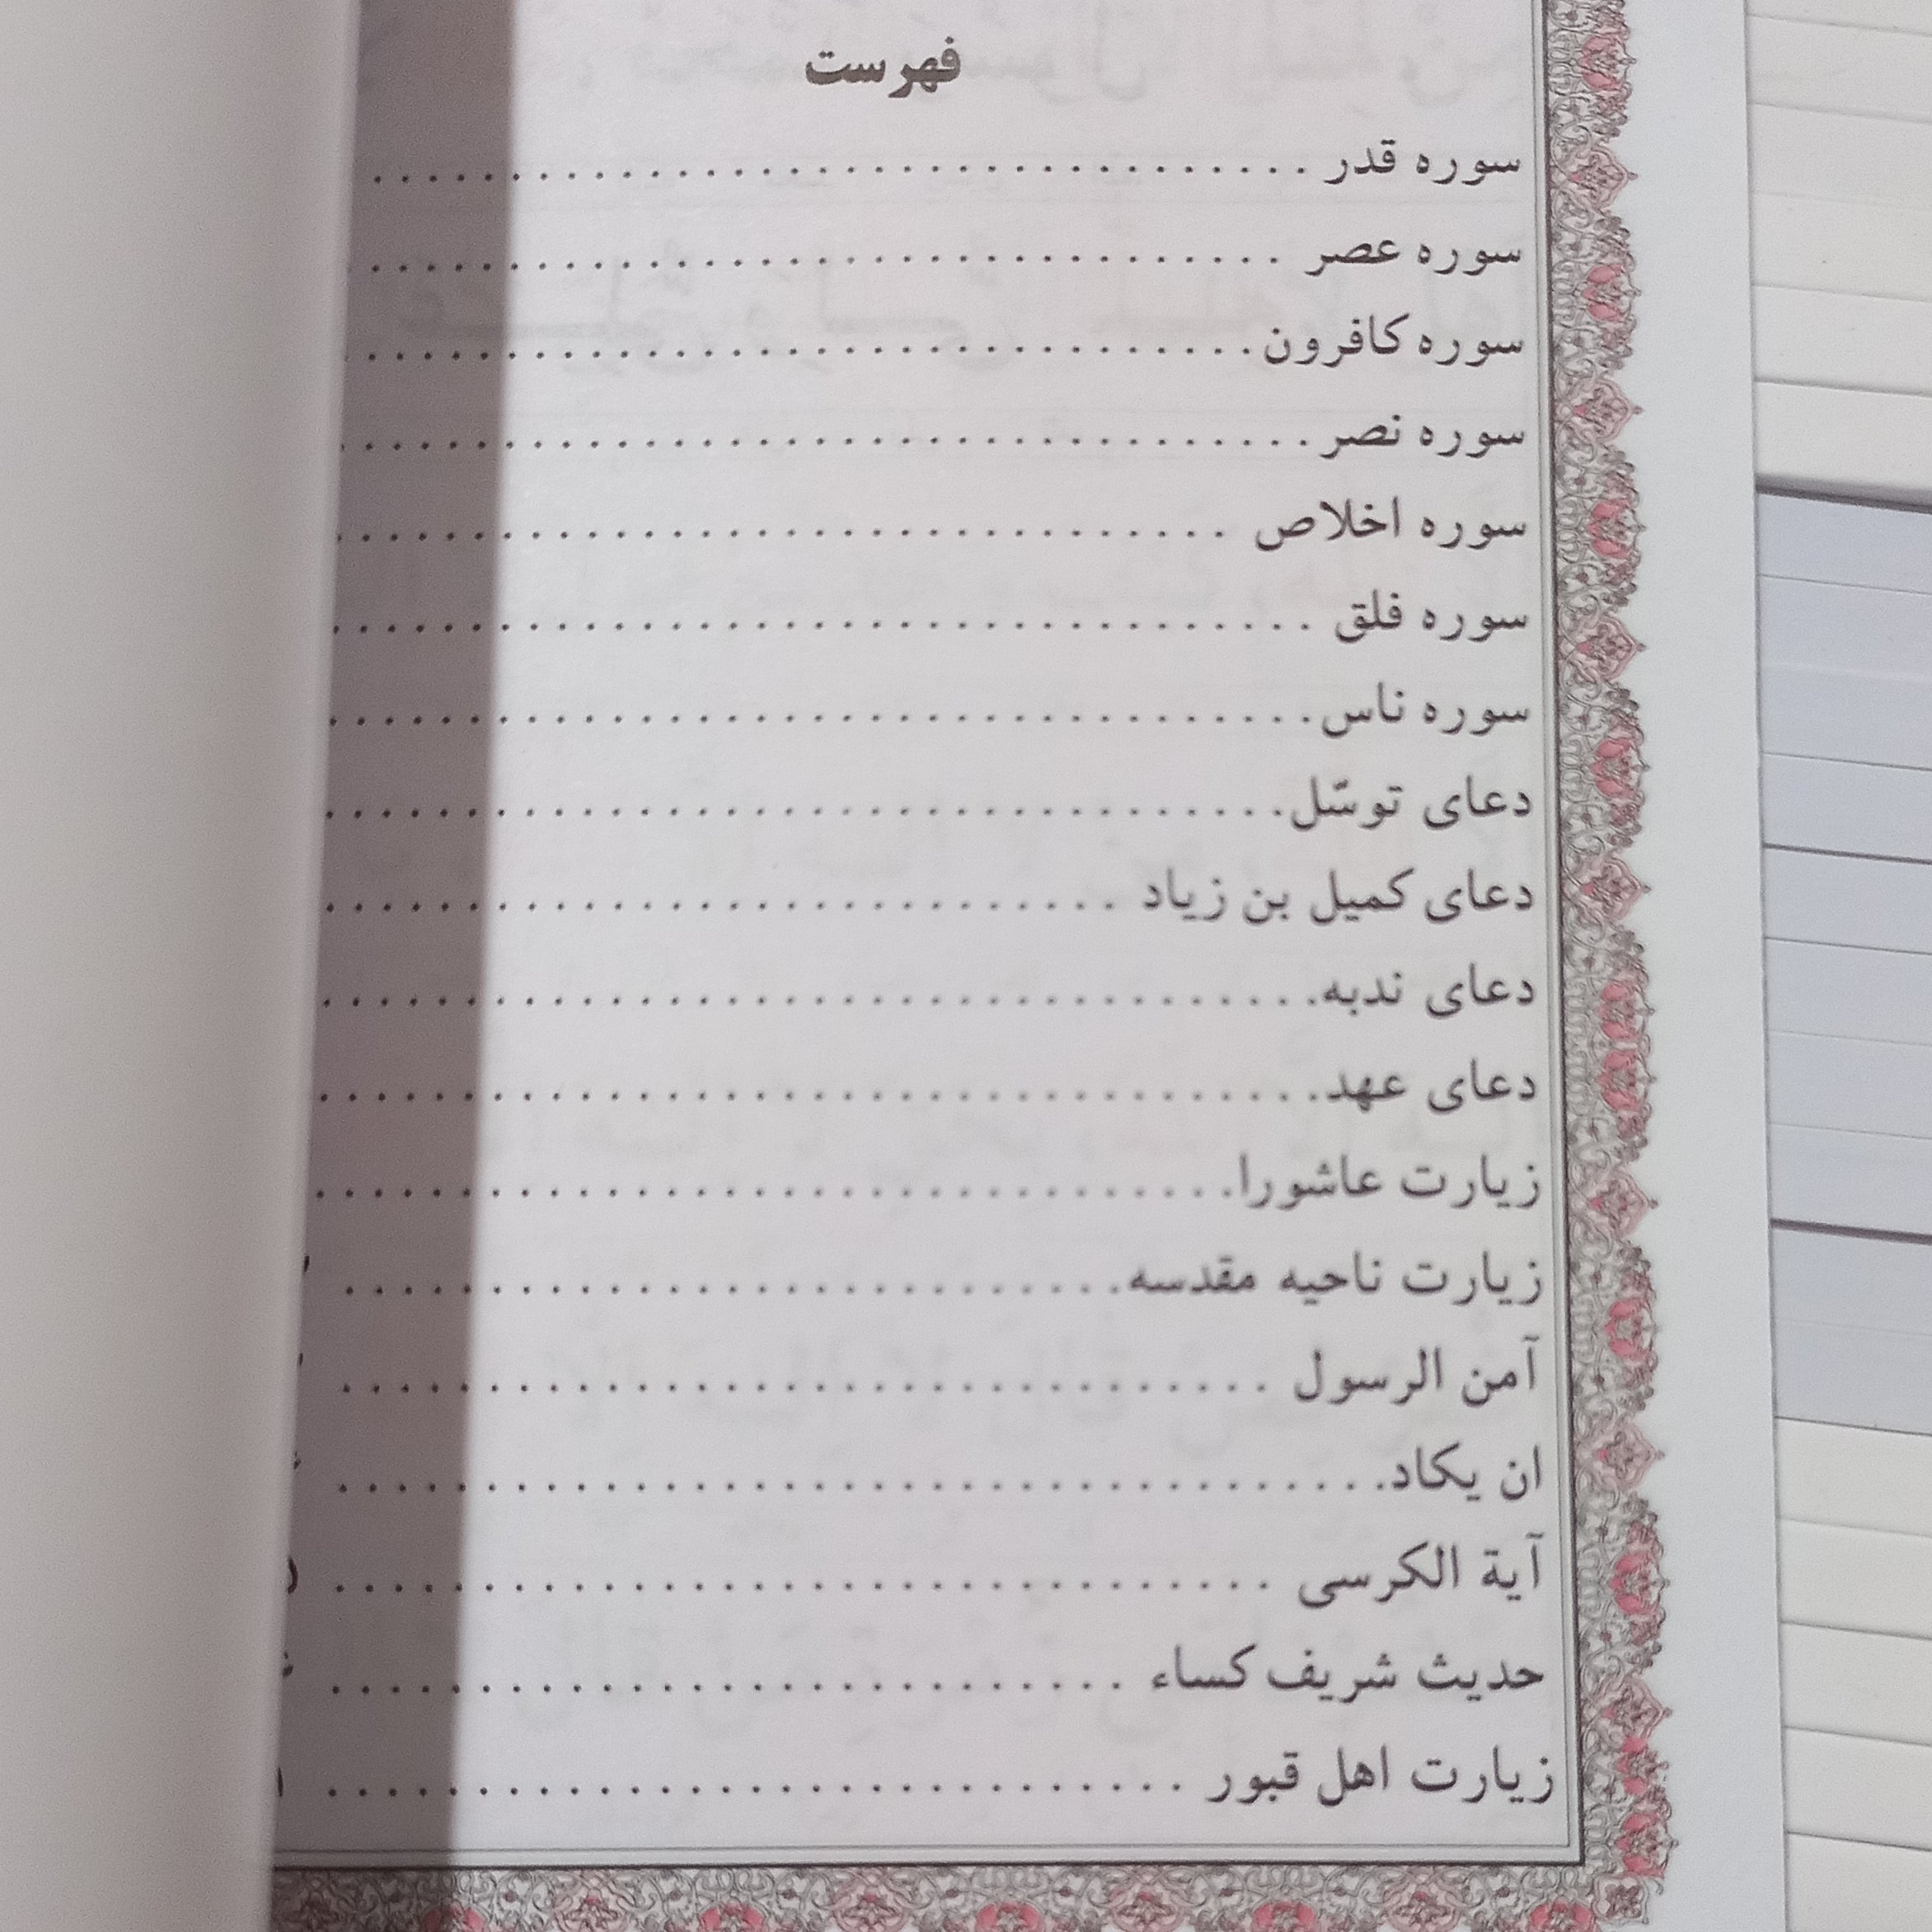 فهرست
سوره قدر
سوره عصر
سوره کافرون
سوره نصر
سوره اخلاص
سوره فلق
سوره ناس
دعای توسّل
دعای کمیل بن زیاد
دعای ندبه
دعای عهد
زیارت عاشورا
زیارت ناحیه مقدسه
آمن الرسول
ان یکاد
آیة الکرسی
حدیث شریف کساء
زیارت اهل قبور